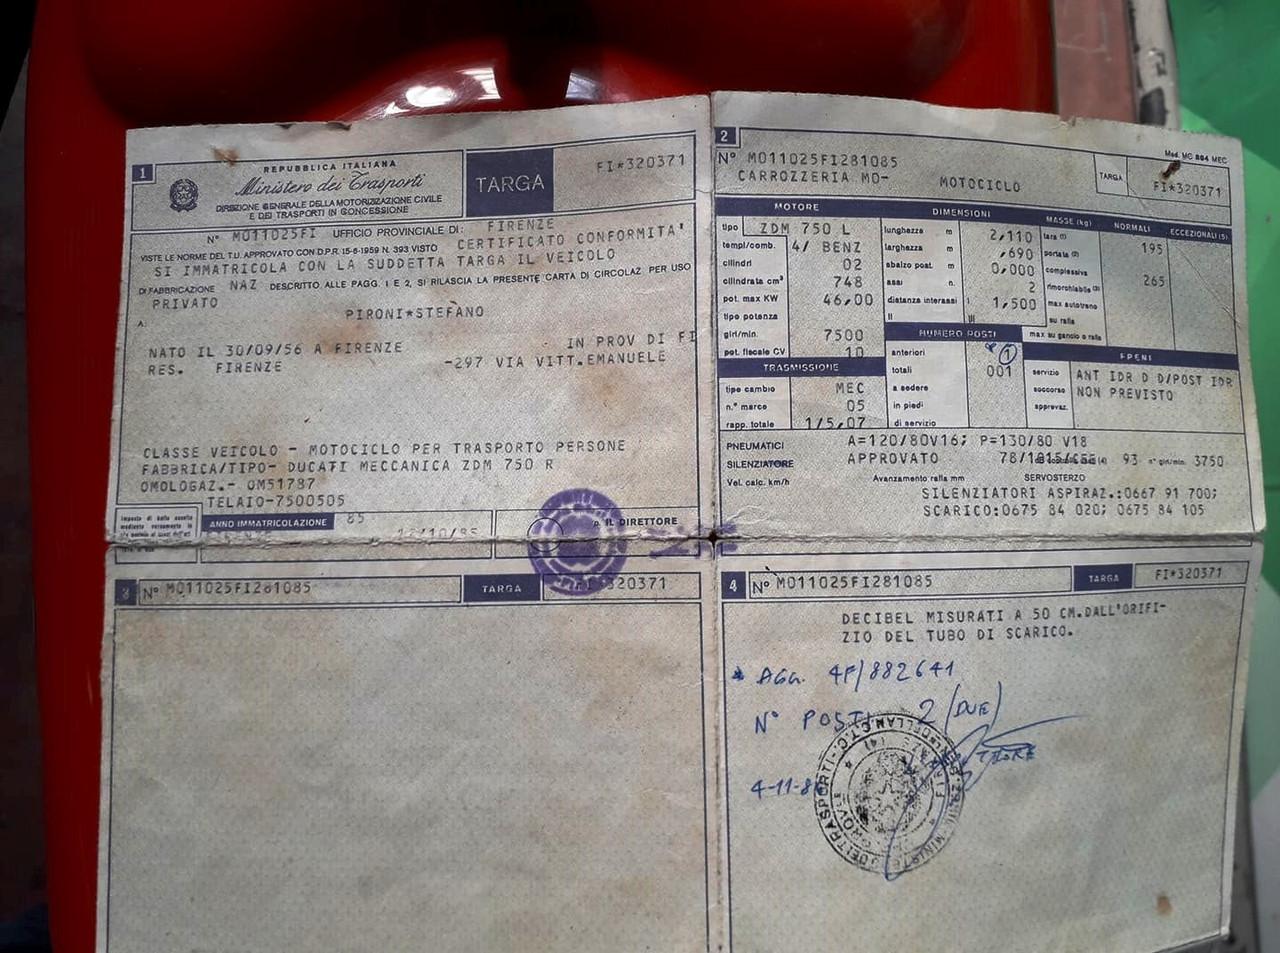 1
REPUBBLICA ITALIANA
Ministero dei Trasporti
DIREZIONE GENERALE DELLA MOTORIZZAZIONE CIVILE
E DEI TRASPORTI IN CONCESSIONE
TARGA
FI*320371
N° M011025FI UFFICIO PROVINCIALE DI: FIRENZE
VISTE LE NORME DEL T.U. APPROVATO CON D.P.R. 15-6-1959 N. 393 VISTO CERTIFICATO CONFORMITA'
SI IMMATRICOLA CON LA SUDDETTA TARGA IL VEICOLO
DI FABBRICAZIONE NAZ DESCRITTO ALLE PAGG. 1 E 2, SI RILASCIA LA PRESENTE CARTA DI CIRCOLAZ PER USO
PRIVATO
A:
PIRONI*STEFANO
NATO IL 30/09/56 A FIRENZE IN PROV DI FI
RES. FIRENZE -297 VIA VITT.EMANUELE
CLASSE VEICOLO - MOTOCICLO PER TRASPORTO PERSONE
FABBRICA/TIPO- DUCATI MECCANICA ZDM 750 R
OMOLOGAZ.- OM51787
TELAIO-7500505
ANNO IMMATRICOLAZIONE 85
/10/85
p. IL DIRETTORE
2
Mod. MC 804 MEC
N° M011025FI281085
CARROZZERIA MO- MOTOCICLO
TARGA
FI*320371
MOTORE
tipo ZDM 750 L
templ/comb. 4/ BENZ
cilindri 02
cilindrata cm³ 748
pot. max KW 46,00
tipo potenza
giri/min. 7500
pot. fiscale CV 10
TRASMISSIONE
tipo cambio MEC
n.° marce 05
rapp. totale 1/5,07
DIMENSIONI
lunghezza m 2,110
larghezza m ,690
sbalzo post. m 0,000
assi n. 2
distanza interassi I 1,500
II
III
NUMERO POSTI
anteriori 1
totali 001
a sedere
in piedi
di servizio
MASSE (kg) NORMALI ECCEZIONALI (5)
tara (1) 195
portata (2)
complessiva 265
rimorchiabile (3)
max autotreno
su ralla
max su gancio o ralla
FRENI
servizio ANT IDR D D/POST IDR
soccorso NON PREVISTO
approvaz.
PNEUMATICI A=120/80V16; P=130/80 V18
SILENZIATORE APPROVATO 78/1015/CEE 93 n° giri/min. 3750
Vel. calc. km/h Avanzamento ralla mm SERVOSTERZO
SILENZIATORI ASPIRAZ.:0667 91 700;
SCARICO:0675 84 020; 0675 84 105
3 N° M011025FI281085 TARGA FI*320371
4 N° M011025FI281085 TARGA FI*320371
DECIBEL MISURATI A 50 CM.DALL'ORIFI-
ZIO DEL TUBO DI SCARICO.
* AGG. 4F/882641
N° POSTI 2 (DUE)
4-11-8